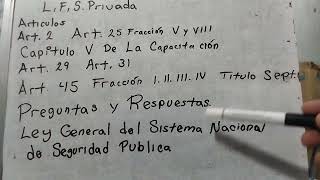 L.F.S. Privada
Artículos
Art. 2 Art. 25 Fracción V y VIII
Capítulo V De La Capacitación
Art. 29 Art. 31
Art 45 Fracción I.II.III.IV Titulo Sept
Preguntas y Respuestas
Ley General del Sistema Nacional
de Seguridad Publica